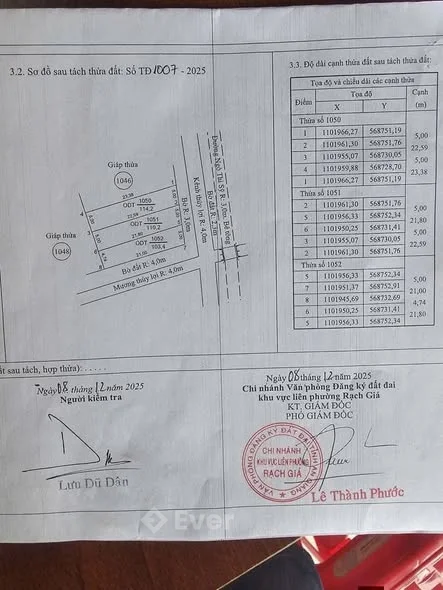 3.2. Sơ đồ sau tách thửa đất: Số TĐ 1007 - 2025
Giáp thửa
1046
23,38
1050
ODT
114,2
22,59
1051
ODT
110,2
21,80
1052
ODT
103,4
21,00
4
5,00
5,00
4,74
1048
Giáp thửa
Bờ đất R: 4,0m
Mương thủy lợi R: 4,0m
Bờ R: 3,0m
Kênh thủy lợi R: 4,0m
Bờ đất R: 2,1m
Đường Ngô Thì Sỹ R: 3,0m, Bê tông
3.3. Độ dài cạnh thửa đất sau tách thửa đất:
Tọa độ và chiều dài các cạnh thửa
Điểm Tọa độ Cạnh (m)
X Y
Thửa số 1050
1 1101966,27 568751,19
5,00
2 1101961,30 568751,76
22,59
3 1101955,07 568730,05
5,00
4 1101959,88 568728,70
23,38
1 1101966,27 568751,19
Thửa số 1051
2 1101961,30 568751,76
5,00
5 1101956,33 568752,34
21,80
6 1101950,25 568731,41
5,00
3 1101955,07 568730,05
22,59
2 1101961,30 568751,76
Thửa số 1052
5 1101956,33 568752,34
5,00
7 1101951,37 568752,91
21,00
8 1101945,69 568732,69
4,74
6 1101950,25 568731,41
21,80
5 1101956,33 568752,34
sau tách, hợp thửa): . . . . .
Ngày 08 tháng 12 năm 2025
Người kiểm tra
Lưu Dũ Dân
Ngày 08 tháng 12 năm 2025
Chi nhánh Văn phòng Đăng ký đất đai
khu vực liên phường Rạch Giá
KT. GIÁM ĐỐC
PHÓ GIÁM ĐỐC
VĂN PHÒNG ĐĂNG KÝ ĐẤT ĐAI TỈNH AN GIANG
CHI NHÁNH
KHU VỰC LIÊN PHƯỜNG
RẠCH GIÁ
Lê Thành Phước
Ever